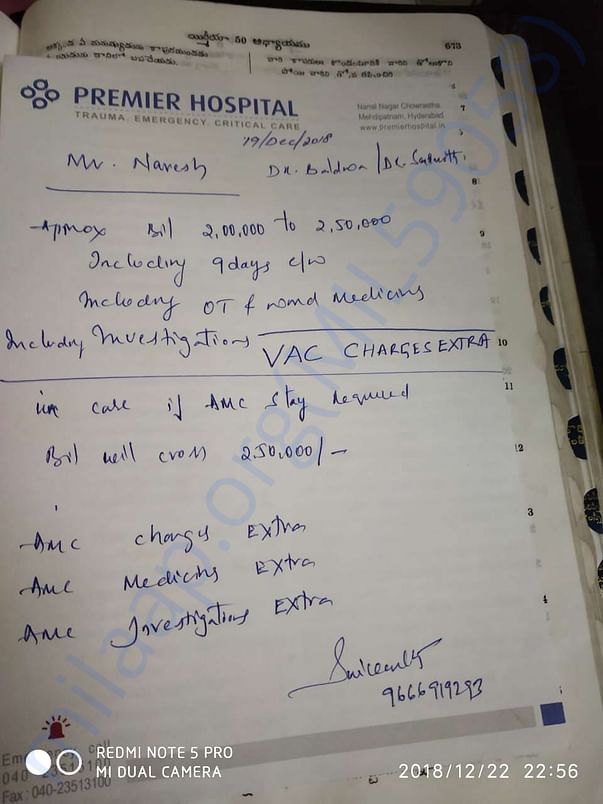 యిర్మీయా 50 అధ్యాయము
673
PREMIER HOSPITAL
TRAUMA. EMERGENCY. CRITICAL CARE
Nanal Nagar Chowrastha,
Mehdipatnam, Hyderabad
www.premierhospital.in
7
19/Dec/2018
Mr. Naresh
Dr. Baldwa / Dr.
8
Approx Bil 2,00,000 to 2,50,000
9
Including 9 days c/w
Including OT & ward Medicins
Including Investigations VAC CHARGES EXTRA
10
11
in case if AMC stay required
Bil will cross 2,50,000/-
12
3
AMC charges Extra
AMC Medicins Extra
AMC Investigations Extra
4
9666919293
040-23513100
Fax : 040-23513100
REDMI NOTE 5 PRO
MI DUAL CAMERA
2018/12/22 22:56
milaap.org(MIL59058)